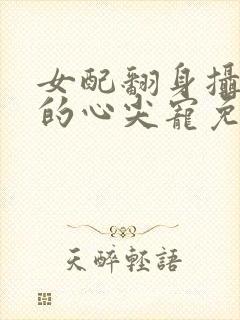 女配翻身攝
的心尖寵免
天醉輕語